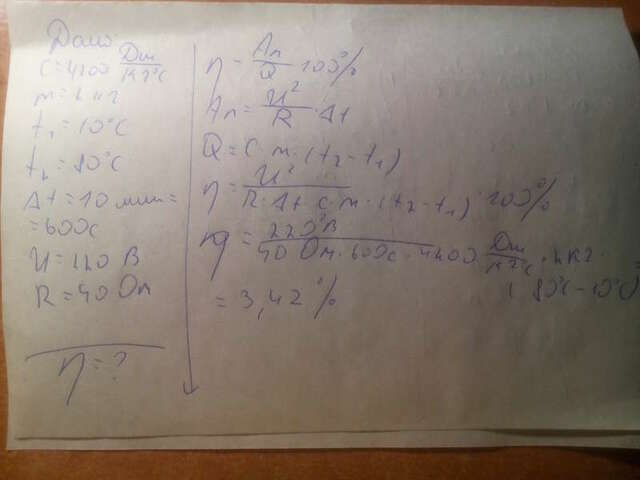 Дано
c = 4200 Дж/кг°C
m = 2 кг
t₁ = 10°C
t₂ = 80°C
Δt = 10 мин =
= 600c
U = 220 В
R = 40 Ом
η = ?
η = Aп/Q · 100%
Aп = U²/R · Δt
Q = c · m · (t₂ - t₁)
η = U²/R · Δt · c · m · (t₂ - t₁) · 100%
η = 220²В/40 Ом · 600c · 4200 Дж/кг°C · 2кг ·
(80°C - 10°C) =
= 3,42 %